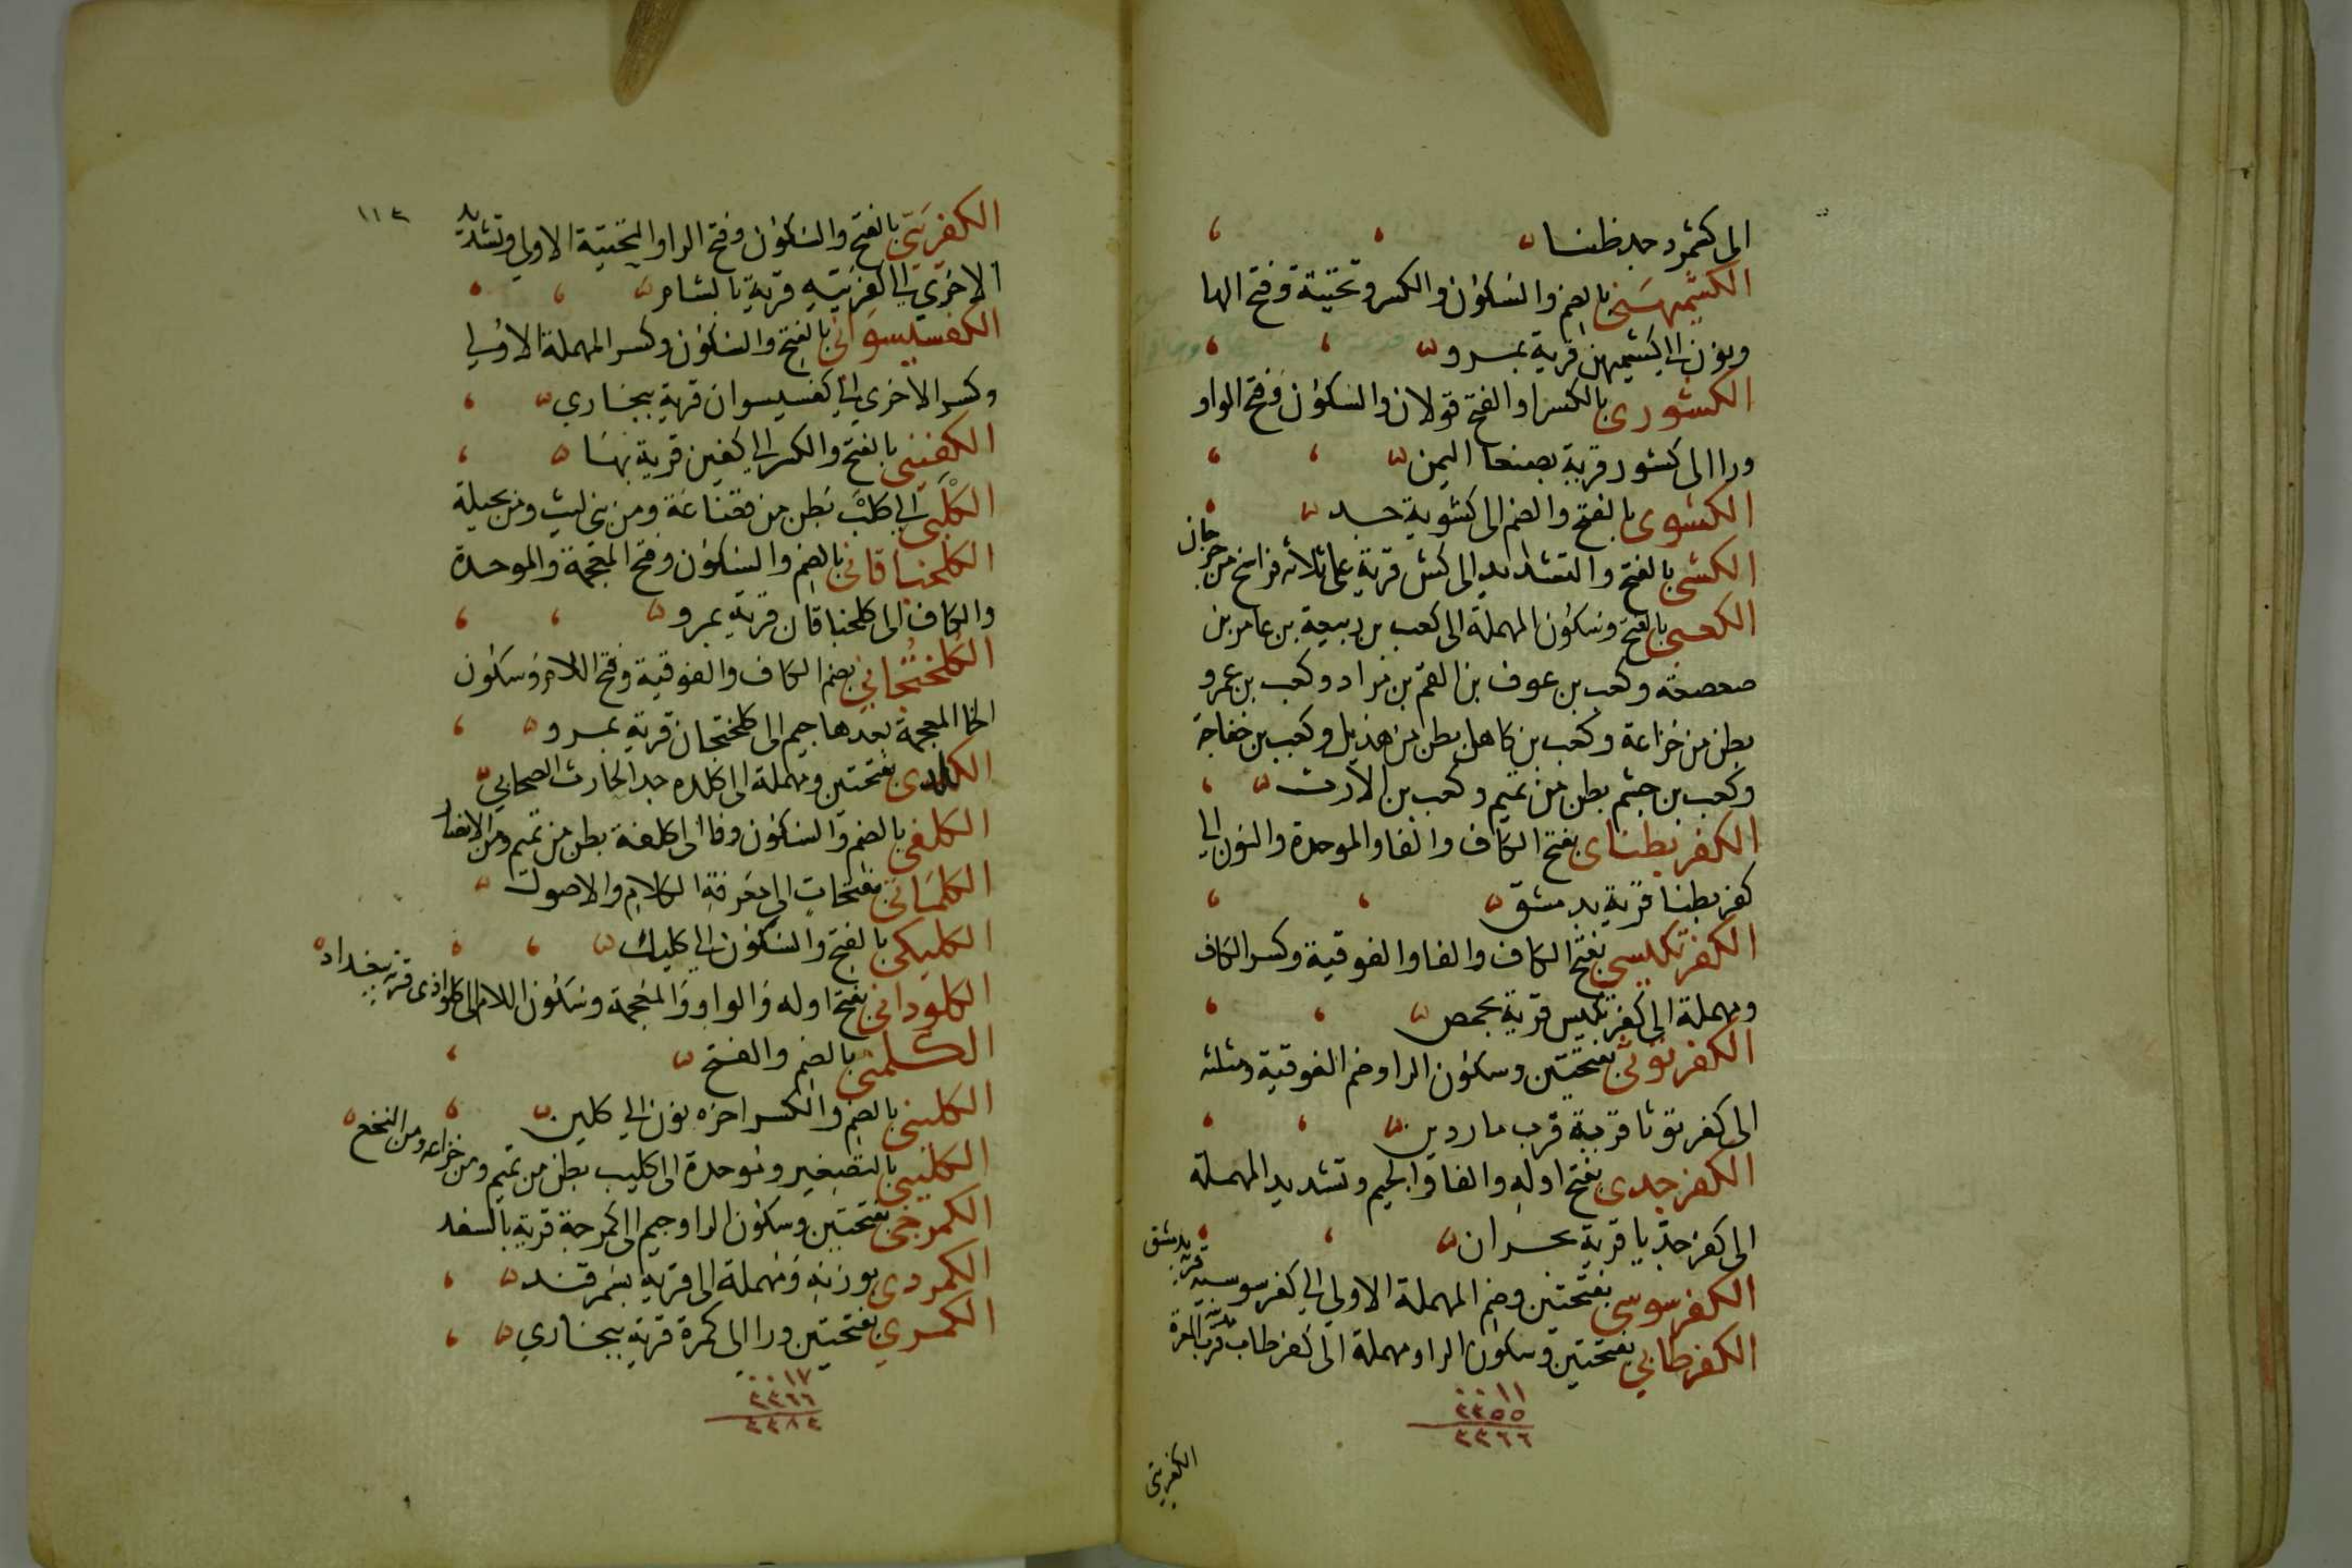 الى كشمرد جد ظنا
الكشميهني بالضم والسكون والكسر وتحتية وفتح الها
ونون الى كشميهن قرية بمرو
الكشورى بالكسر او الفتح قولان والسكون وفتح الواو
ورا الى كشور قرية بصنعا اليمن
الكشوى بالفتح والضم الى كشوية جد
الكشى بالفتح والتشديد الى كش قرية على ثلاثه فراسخ من جرجان
الكعبى بالفتح وسكون المهملة الى كعب بن ربيعة بن عامر بن
صعصعة وكعب بن عوف بن انعم بن مراد وكعب بن عمرو
بطن من خزاعة وكعب بن كاهل بطن من هذيل وكعب بن خفاجة
وكعب بن جشم بطن من تميم وكعب بن الارت
الكفربطناى بفتح الكاف والفا والموحدة والنون الى
كفربطنا قرية بدمشق
الكفرتكيسى بفتح الكاف والفا والفوقية وكسر الكاف
ومهملة الى كفرتكيس قرية بحمص
الكفرتوثى بفتحتين وسكون الرا وضم الفوقية ومثلثه
الى كفرتوثا قرية قرب ماردين
الكفرجدى بفتح اوله والفا والجيم وتشديد المهملة
الى كفرجديا قرية بحران
الكفرسوسى بفتحتين وضم المهملة الاولى الى كفرسوسيه قرية بدمشق
الكفرطابي بفتحتين وسكون الرا ومهملة الى كفرطاب قرب المعرة
١١
٢٢٥٥
٢٢٦٦
الكفريتى
١١٣
الكفريتى بالفتح والسكون وفتح الرا والتحتية الاولى وتشديد
الاخرى الى الكفريتيه قرية بالشام
الكفسيسوانى بالفتح والسكون وكسر المهملة الاولى
وكسر الاخرى الى كفسيسوان قرية ببخارى
الكفينى بالفتح والكسر الى كفين قرية بها
الكلبى الى كلب بطن من قضاعة ومن بنى ليث ومن بجيلة
الكلخباقانى بالضم والسكون وفتح المعجمة والموحدة
والكاف الى كلخباقان قرية بمرو
الكلختجانى بضم الكاف والفوقية وفتح اللام وسكون
الخا المعجمة بعدها جيم الى كلختجان قرية بمرو
الكلدى بفتحتين ومهملة الى كلده جد الحارث الصحابي
الكلفى بالضم والسكون وفا الى كلفة بطن من تميم ومن الانصار
الكلمانى بفتحات الى معرفة الكلام والاصول
الكليكى بالفتح والسكون الى كليك
الكلوذانى بفتح اوله والواو والمعجمة وسكون اللام الى كلواذى قرية ببغداد
الكلمنى بالضم والفتح
الكلينى بالضم والكسر اخره نون الى كلين
الكليبى بالتصغير وموحدة الى كليب بطن من تميم ومن خزاعه ومن النخع
الكمرجى بفتحتين وسكون الرا وجيم الى كمرجة قرية بالسغد
الكمردى بوزنه ومهملة الى قرية بسمرقند
الكمري بفتحتين ورا الى كمرة قرية ببخارى
١٧
٢٢٦٦
٢٢٨٣